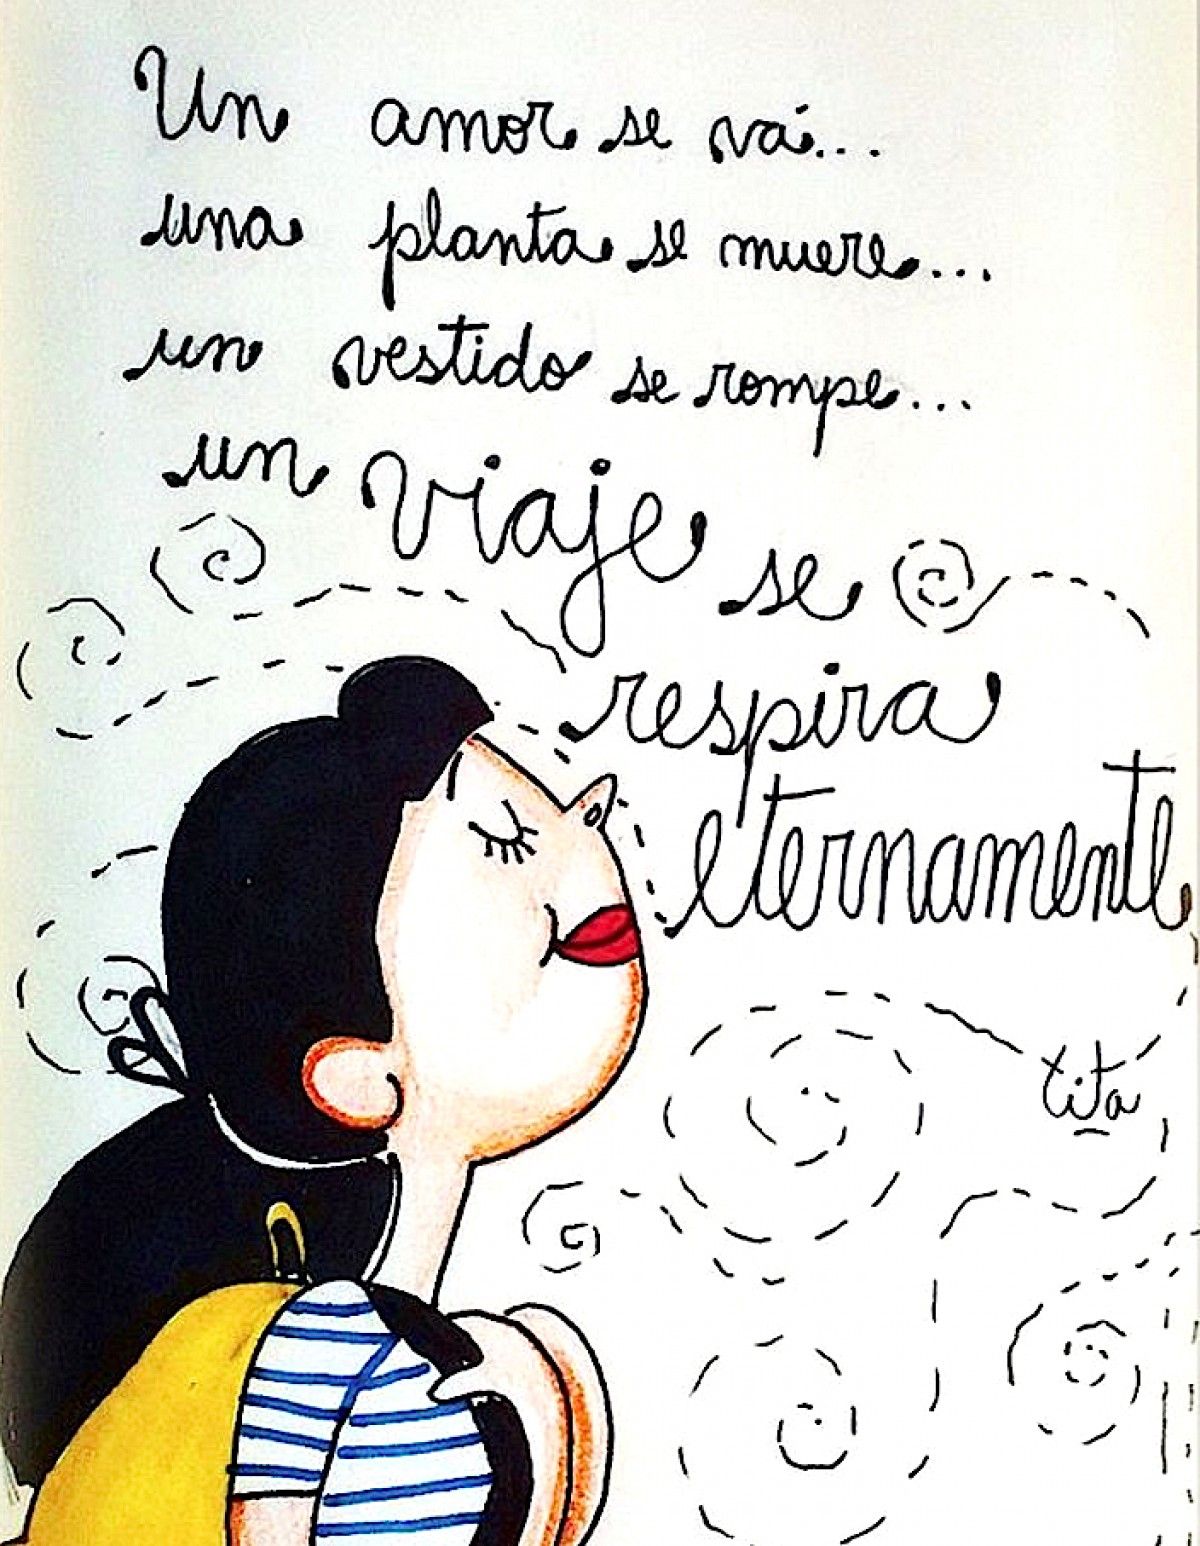 Un amor se vá...
una planta se muere...
un vestido se rompe...
un viaje se
respira
eternamente
tita